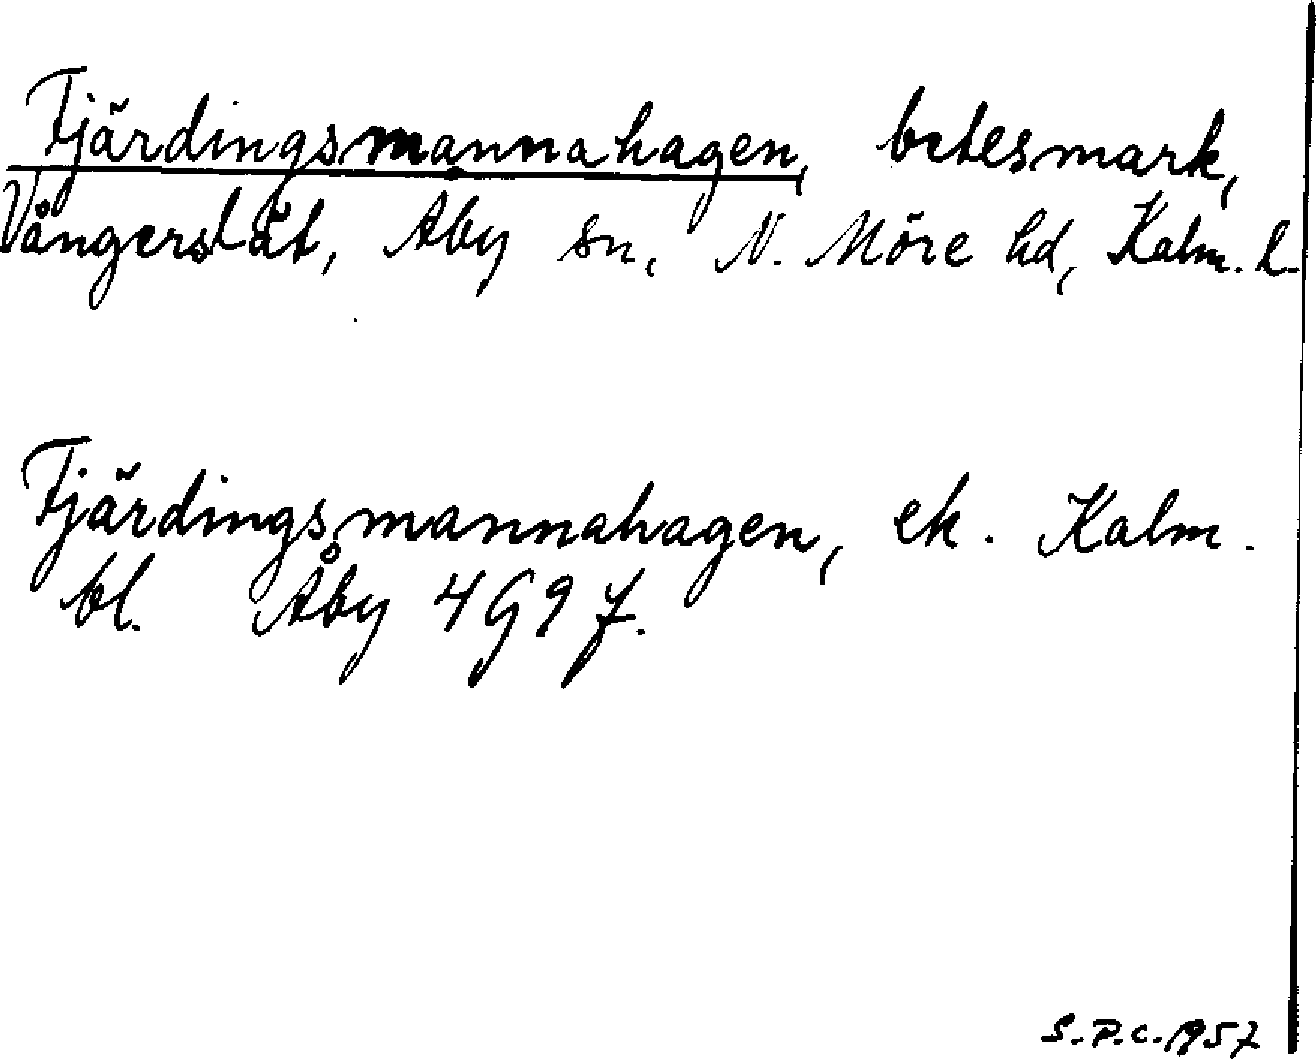 Fjärdingsmannahagen, betesmark,
Vångerslät, Åby sn, N. Möre hd, Kalm. l.
Fjärdingsmannahagen, ek. Kalm.
bl. Åby 4G9f.
S.P.C. 1957